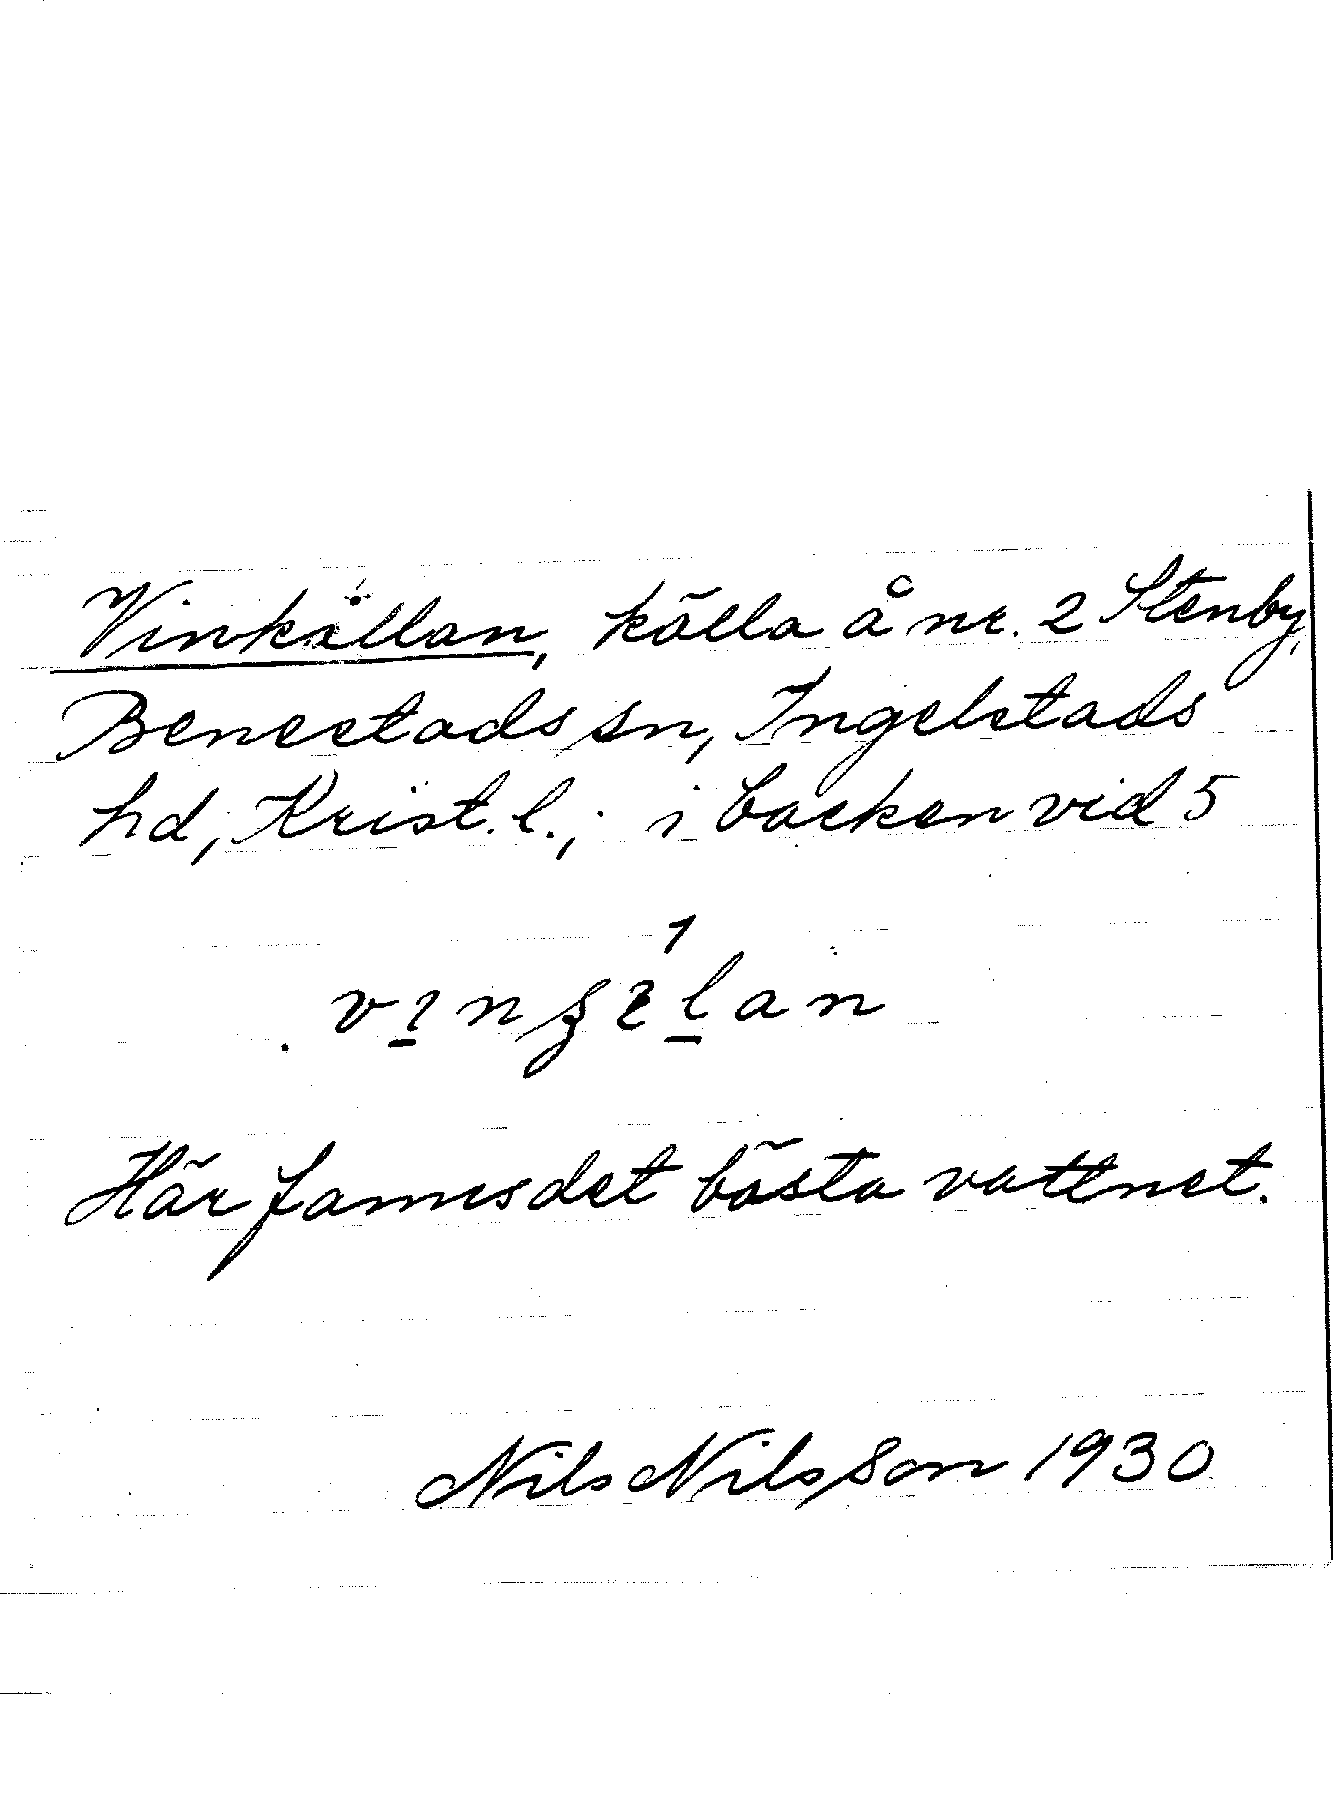 Vinkällan, källa å nr. 2 Stenby,
Benestads sn, Ingelstads
hd, Krist. l.; i backen vid 5
Här fanns det bästa vattnet.
Nils Nilsson 1930